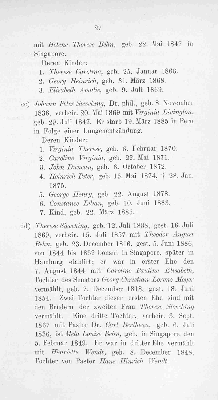 mit Helene Therese Behn, geb. 22 Mai 1842 in
Singapore.
Deren Kinder:
1. Therese Caroline, geb. 25. Januar 1866.
2. Georg Heinrich, geb. 31. März 1868.
3. Elisabeth Amalie, geb. 9. Juli 1869.
Johann Peter Sieveking, Dr. phil., geb. 8 November
1836, verheir. 20 Mai 1869 mit Virginie
geb. 29. Juli 1847. Er starb 19. März 1885 in Paris
in Folge einer Lungenentzündung.
Deren Kinder:
1. Virginie Therese, geb. 6. Februar 1870.
2. Caroline Virginie, geb. 22. Mai 1871.
3. John Francis, geb. 8. October 1872.
4. Heinrich Peter, geb. 15. Mai 1874, † 28. Jan.
1875.
5. George Henry, geb. 22. August 1878.
6. Constance Lilian, geb. 10. Juni 1883.
7. Kind, geb. 22. März 1885.
Therese Sieveking, geb. 12. Juli 1838, gest. 16. Juli
1869, verheir. 15. Juli 1857 mit Theodor August
Behn, geb. 23. December 1816, gest. 5. Juni 1886,
von 1844 bis 1857 Consul in Singapore, später in
Hamburg
7. August 1844 mit Caroline Elisabeth,
Tochter des Senators Georg Christian Lorenz Meyer
vermählt, geb. 7. December 1818, gest. 18. Juni
1854. Zwei Töchter dieser ersten Ehe sind mit
den Brüdern der zweiten Frau Therese Sieveking
vermählt. Eine dritte Tochter, verheir. 5. Sept.
1867 mit Pastor Dr. Carl geb. 6. Juli
1836, ist Behn, geb. in Singapore den
5. Februar 1849. Er war in dritter Ehe vermählt
mit Henriette Wendt, geb. 8. December 1848,
Tochter von Pastor Hans Hinrich Wendt